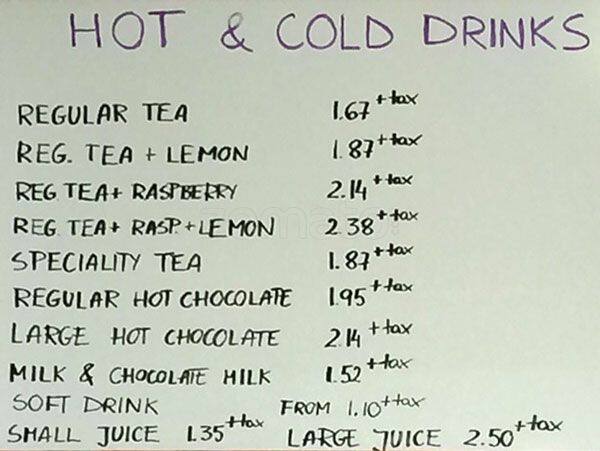 HOT & COLD DRINKS
REGULAR TEA 1.67 +tax
REG. TEA + LEMON 1.87 +tax
REG TEA + RASPBERRY 2.14 +tax
REG. TEA + RASP. + LEMON 2.38 +tax
SPECIALITY TEA 1.87 +tax
REGULAR HOT CHOCOLATE 1.95 +tax
LARGE HOT CHOCOLATE 2.14 +tax
MILK & CHOCOLATE MILK 1.52 +tax
SOFT DRINK FROM 1.10 +tax
SMALL JUICE 1.35 +tax LARGE JUICE 2.50 +tax